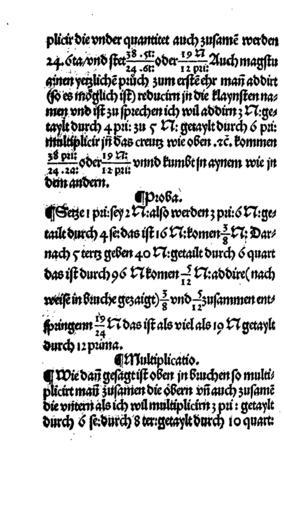 plicir die vnder quantitet auch zusamē werden
24. 6ta/vnd stet 38 · 5t: / 24 · 6t: oder 19 N / 12 pri: Auch magstu
ainen yetzlichē pruch zum erstē ehr man̄ addirt
(so es möglich ist) reducirn jn die klaynsten na-
men vnd ist zu sprechen ich wil addirn 3 N: ge-
taylt durch 4 pri: zu 5 N: getaylt durch 6 pri:
multiplicir jn̄ das creutz wie oben .ꝛc. kommen
38 pri: / 24 · 2a: oder 19 N: / 12 pri: vnnd kumbt in aynem wie jn
dem andern.
¶Proba.
¶Setze 1 pri: sey 2 N: also werden 3 pri: 6 N: ge-
tailt durch 4 se: das ist 16 N: komen 3/8 N: Dar-
nach 5 tertz geben 40 N: getailt durch 6 quart
das ist durch 96 N komen 5/12 N: addire (nach
weise in bruche gezaigt) 3/8 vnd 5/12 zusammen ent-
springenn 19/24 N das ist als viel als 19 N getaylt
durch 12 prima.
¶Multiplicatio.
¶Wie dan̄ gesagt ist oben jn bruchen so multi-
plicirt man̄ zusamen die obern vn̄ auch zusamē
die vntern als ich wil multiplicirn 3 pri: getaylt
durch 6 se: durch 8 ter: getaylt durch 10 quart: